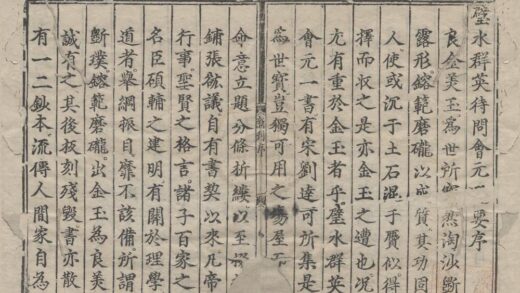 璧水群英待問會元要序
良金美玉爲世所然淘沙斸
露形鎔範磨礲以成質其功固
人使或沉于土石混于贋似得
擇而収之是亦金玉之遭也况
尤有重於金玉者乎璧水群英
會元一書有宋劉達可所集是
爲世寳豈獨可用之塲屋
命意立題分條折縷以至
鋪張紘議自有書契以來凢帝
行事聖賢之格言諸子百家之
名臣碩輔之建明有關於理學
道者舉綱振目靡不該備所謂
斸璞鎔範磨礲出金玉爲良美
誠有之其後板刻殘毀書亦散
有一二鈔本流傳人間家自爲